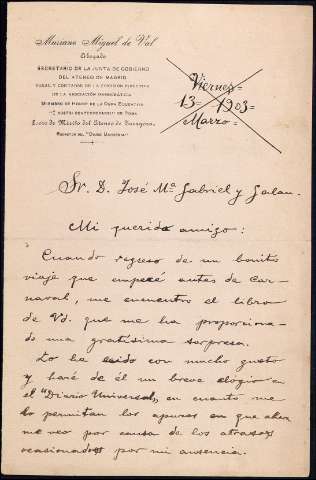 Mariano Miguel de Val
Abogado
SECRETARIO DE LA JUNTA DE GOBIERNO
DEL ATENEO DE MADRID
VOCAL Y CONTADOR DE LA COMISIÓN DIRECTIVA
DE LA ASOCIACIÓN DEMOCRÁTICA
MIEMBRO DE HONOR DE LA OBRA EDUCATIVA
DE ROMA
Socio de Mérito del Ateneo de Zaragoza
REDACTOR DEL "DIARIO UNIVERSAL"
Viernes=
13= 1903=
Marzo=
Sr. D. José Mª Gabriel y Galan.
Mi querido amigo:
Cuando regreso de un bonito
viaje que empecé antes de Car-
naval, me encuentro el libro
de Vd. que me ha proporciona-
do una gratísima sorpresa.
Lo he leido con mucho gusto
y haré de él un breve elogio en
el "Diario Universal", en cuanto me
lo permitan los apuros en que ahora
me veo por causa de los atrasos
ocasionados por mi ausencia.